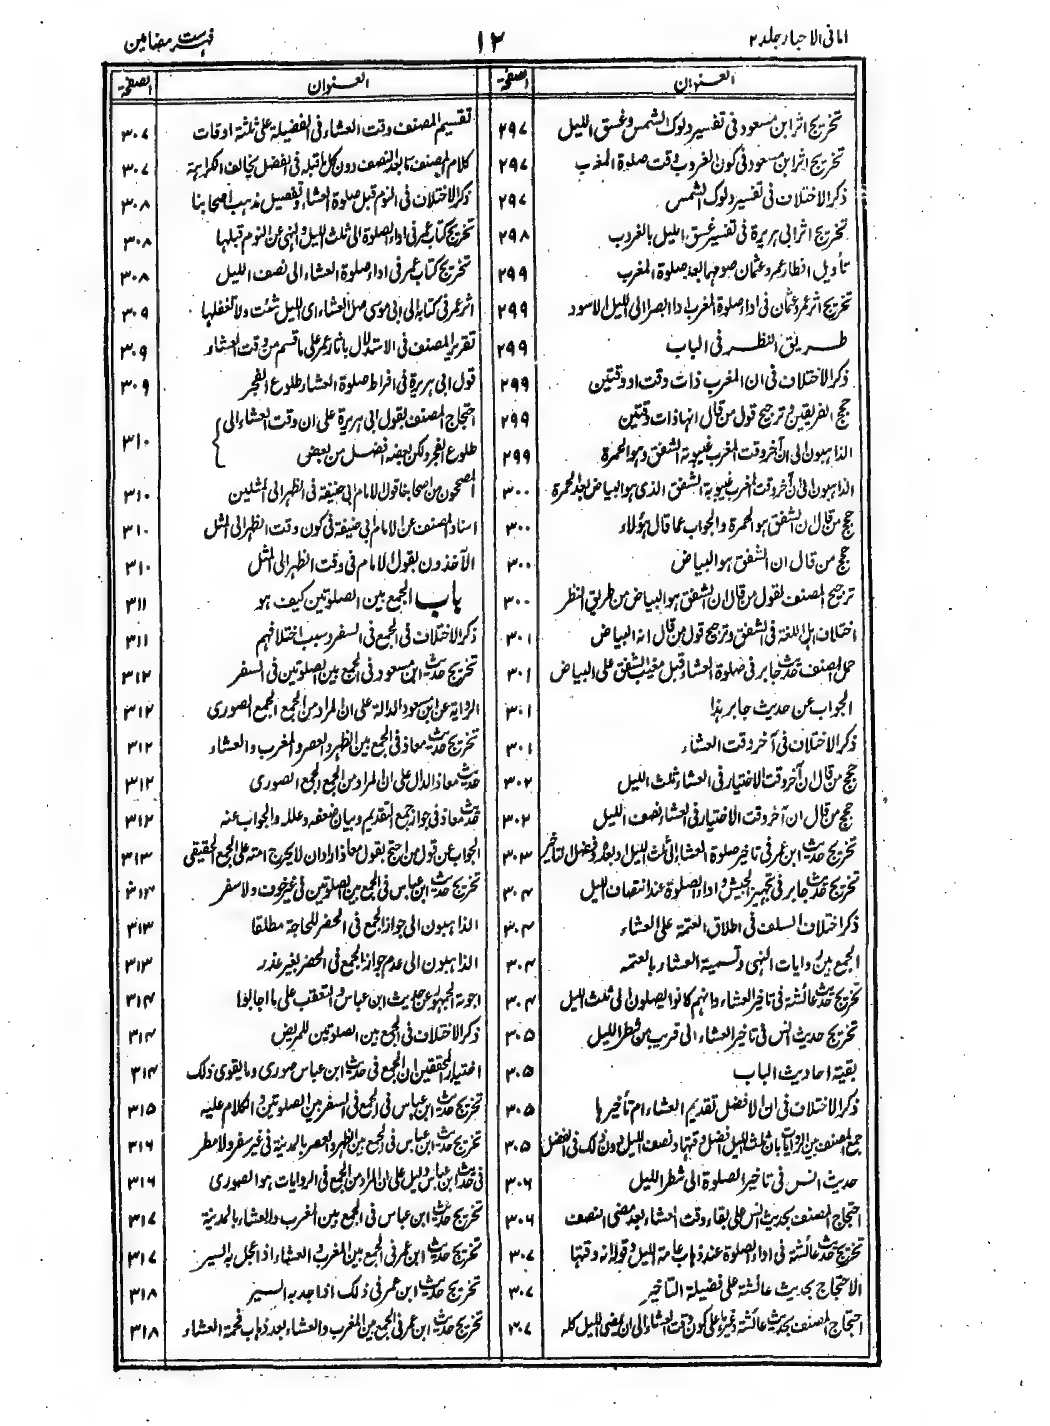 امانی الاحبار جلد ۲
۱۲
فہرست مضامین
العنوان
الصفحة
تخريج اثر ابن مسعود فی تفسیر دلوك الشمس وغسق الليل ۲۹۷
تخريج اثر ابن مسعود فی كون الغروب وقت صلوة المغرب ۲۹۷
ذكر الاختلاف فی تفسیر دلوك الشمس ۲۹۷
تخريج اثر ابی هريرة فی تفسیر غسق الليل بالغروب ۲۹۸
تأويل افطار عمر وعثمان صومهما بعد صلوة المغرب ۲۹۹
تخريج اثر عمر وعثمان فی اداء صلوة المغرب اذا ابصرا الى الليل الاسود ۲۹۹
طريق النظر فی الباب ۲۹۹
ذكر الاختلاف فی ان المغرب ذات وقت او وقتين ۲۹۹
حجج الفريقين وترجيح قول من قال انها ذات وقتين ۲۹۹
الذاهبون الى ان آخر وقت المغرب غيبوبة الشفق وهو الحمرة ۲۹۹
الذاهبون الى ان آخر وقت المغرب غيبوبة الشفق الذی هو البياض بعد الحمرة ۳۰۰
حجج من قال ان الشفق هو الحمرة والجواب عما قال هؤلاء ۳۰۰
حجج من قال ان الشفق هو البياض ۳۰۰
ترجيح المصنف لقول من قال ان الشفق هو البياض من طريق النظر ۳۰۰
اختلاف اهل اللغة فی الشفق وترجيح قول من قال انه البياض ۳۰۱
حمل المصنف حديث جابر فی صلوة العشاء قبل مغيب الشفق على البياض ۳۰۱
الجواب عن حديث جابر هذا ۳۰۱
ذكر الاختلاف فی آخر وقت العشاء ۳۰۱
حجج من قال ان آخر وقت الاختيار فی العشاء ثلث الليل ۳۰۲
حجج من قال ان آخر وقت الاختيار فی العشاء نصف الليل ۳۰۲
تخريج حديث ابن عمر فی تاخير صلوة العشاء الى ثلث الليل او بعده وفضل تاخير ۳۰۳
تخريج حديث جابر فی تجهيز الجيش واداء الصلوة عند انتصاف الليل ۳۰۴
ذكر اختلاف السلف فی اطلاق العتمة على العشاء ۳۰۴
الجمع بين روايات النهی وتسمية العشاء بالعتمه ۳۰۴
تخريج حديث عائشة فی تاخير العشاء وانهم كانوا يصلون الى ثلث الليل ۳۰۴
تخريج حديث انس فی تاخير العشاء الى قريب من شطر الليل ۳۰۵
بقية احاديث الباب ۳۰۵
ذكر الاختلاف فی ان الافضل تقديم العشاء ام تأخيرها ۳۰۵
جمع المصنف بين الروايات بان ثلث الليل افضل وقتها ونصف الليل دون ذلك فی الفضل ۳۰۵
حديث انس فی تاخير الصلوة الى شطر الليل ۳۰۶
احتجاج المصنف بحديث انس على بقاء وقت العشاء بعد مضی النصف ۳۰۶
تخريج حديث عائشة فی اداء الصلوة عند ذهاب عامة الليل وقوله انه وقتها ۳۰۷
الاحتجاج بحديث عائشة على فضيلة التأخير ۳۰۷
احتجاج المصنف بحديث عائشة وغيرها على كون وقت العشاء الى ان يمضی الليل كله ۳۰۷
العنوان
الصفحة
تقسيم المصنف وقت العشاء فی الفضيلة على ثلثة اوقات ۳۰۷
كلام المصنف ما بعد النصف دون كل ما قبله فی الفضل يخالف الكراهة ۳۰۷
ذكر الاختلاف فی النوم قبل صلوة العشاء وتفصيل مذهب اصحابنا ۳۰۸
تخريج كتاب عمر فی اداء الصلوة الى ثلث الليل والنهی عن النوم قبلها ۳۰۸
تخريج كتاب عمر فی اداء صلوة العشاء الى نصف الليل ۳۰۸
اثر عمر فی كتابه الى ابی موسى صل العشاء ای الليل شئت ولا تغفلها ۳۰۹
تقرير المصنف فی الاستدلال باثار عمر على ما قسم من وقت العشاء ۳۰۹
قول ابی هريرة فی افراط صلوة العشاء طلوع الفجر ۳۰۹
احتجاج المصنف بقول ابی هريرة على ان وقت العشاء الى
طلوع الفجر ولكن بعضه افضل من بعض ۳۱۰
المصححون من اصحابنا قول الامام ابی حنيفة فی الظهر الى المثلين ۳۱۰
اسناد المصنف عن الامام ابی حنيفة فی كون وقت الظهر الى المثل ۳۱۰
الآخذون بقول الامام فی وقت الظهر الى المثل ۳۱۰
باب الجمع بين الصلوتين كيف هو ۳۱۱
ذكر الاختلاف فی الجمع فی السفر وسبب اختلافهم ۳۱۱
تخريج حديث ابن مسعود فی الجمع بين الصلوتين فی السفر ۳۱۲
الرواية عن ابن مسعود الدالة على ان المراد من الجمع الجمع الصوری ۳۱۲
تخريج حديث معاذ فی الجمع بين الظهر والعصر والمغرب والعشاء ۳۱۲
حديث معاذ الدال على ان المراد من الجمع الجمع الصوری ۳۱۲
حديث معاذ فی جواز جمع التقديم وبيان ضعفه وعلله والجواب عنه ۳۱۲
الجواب عن قول من احتج بقول معاذ اراد ان لا يحرج امته على الجمع الحقيقی ۳۱۳
تخريج حديث ابن عباس فی الجمع بين الصلوتين فی غير خوف ولا سفر ۳۱۳
الذاهبون الى جواز الجمع فی الحضر للحاجة مطلقا ۳۱۳
الذاهبون الى عدم جواز الجمع فی الحضر بغير عذر ۳۱۳
اجوبة الجمهور عن حديث ابن عباس والتعقب على ما اجابوا ۳۱۴
ذكر الاختلاف فی الجمع بين الصلوتين للمريض ۳۱۴
اختيار المحققين ان الجمع فی حديث ابن عباس صوری وما يقوی ذلك ۳۱۴
تخريج حديث ابن عباس فی الجمع فی السفر بين الصلوتين والكلام عليه ۳۱۵
تخريج حديث ابن عباس فی الجمع بين الظهر والعصر بالمدينة فی غير سفر ولا مطر ۳۱۶
فی حديث ابن عباس دليل على ان المراد من الجمع فی الروايات هو الصوری ۳۱۶
تخريج حديث ابن عباس فی الجمع بين المغرب والعشاء بالمدينة ۳۱۷
تخريج حديث ابن عمر فی الجمع بين المغرب والعشاء اذا عجل به السير ۳۱۷
تخريج حديث ابن عمر فی ذلك اذا جد به السير ۳۱۸
تخريج حديث ابن عمر فی الجمع بين المغرب والعشاء بعد ذهاب فحمة العشاء ۳۱۸